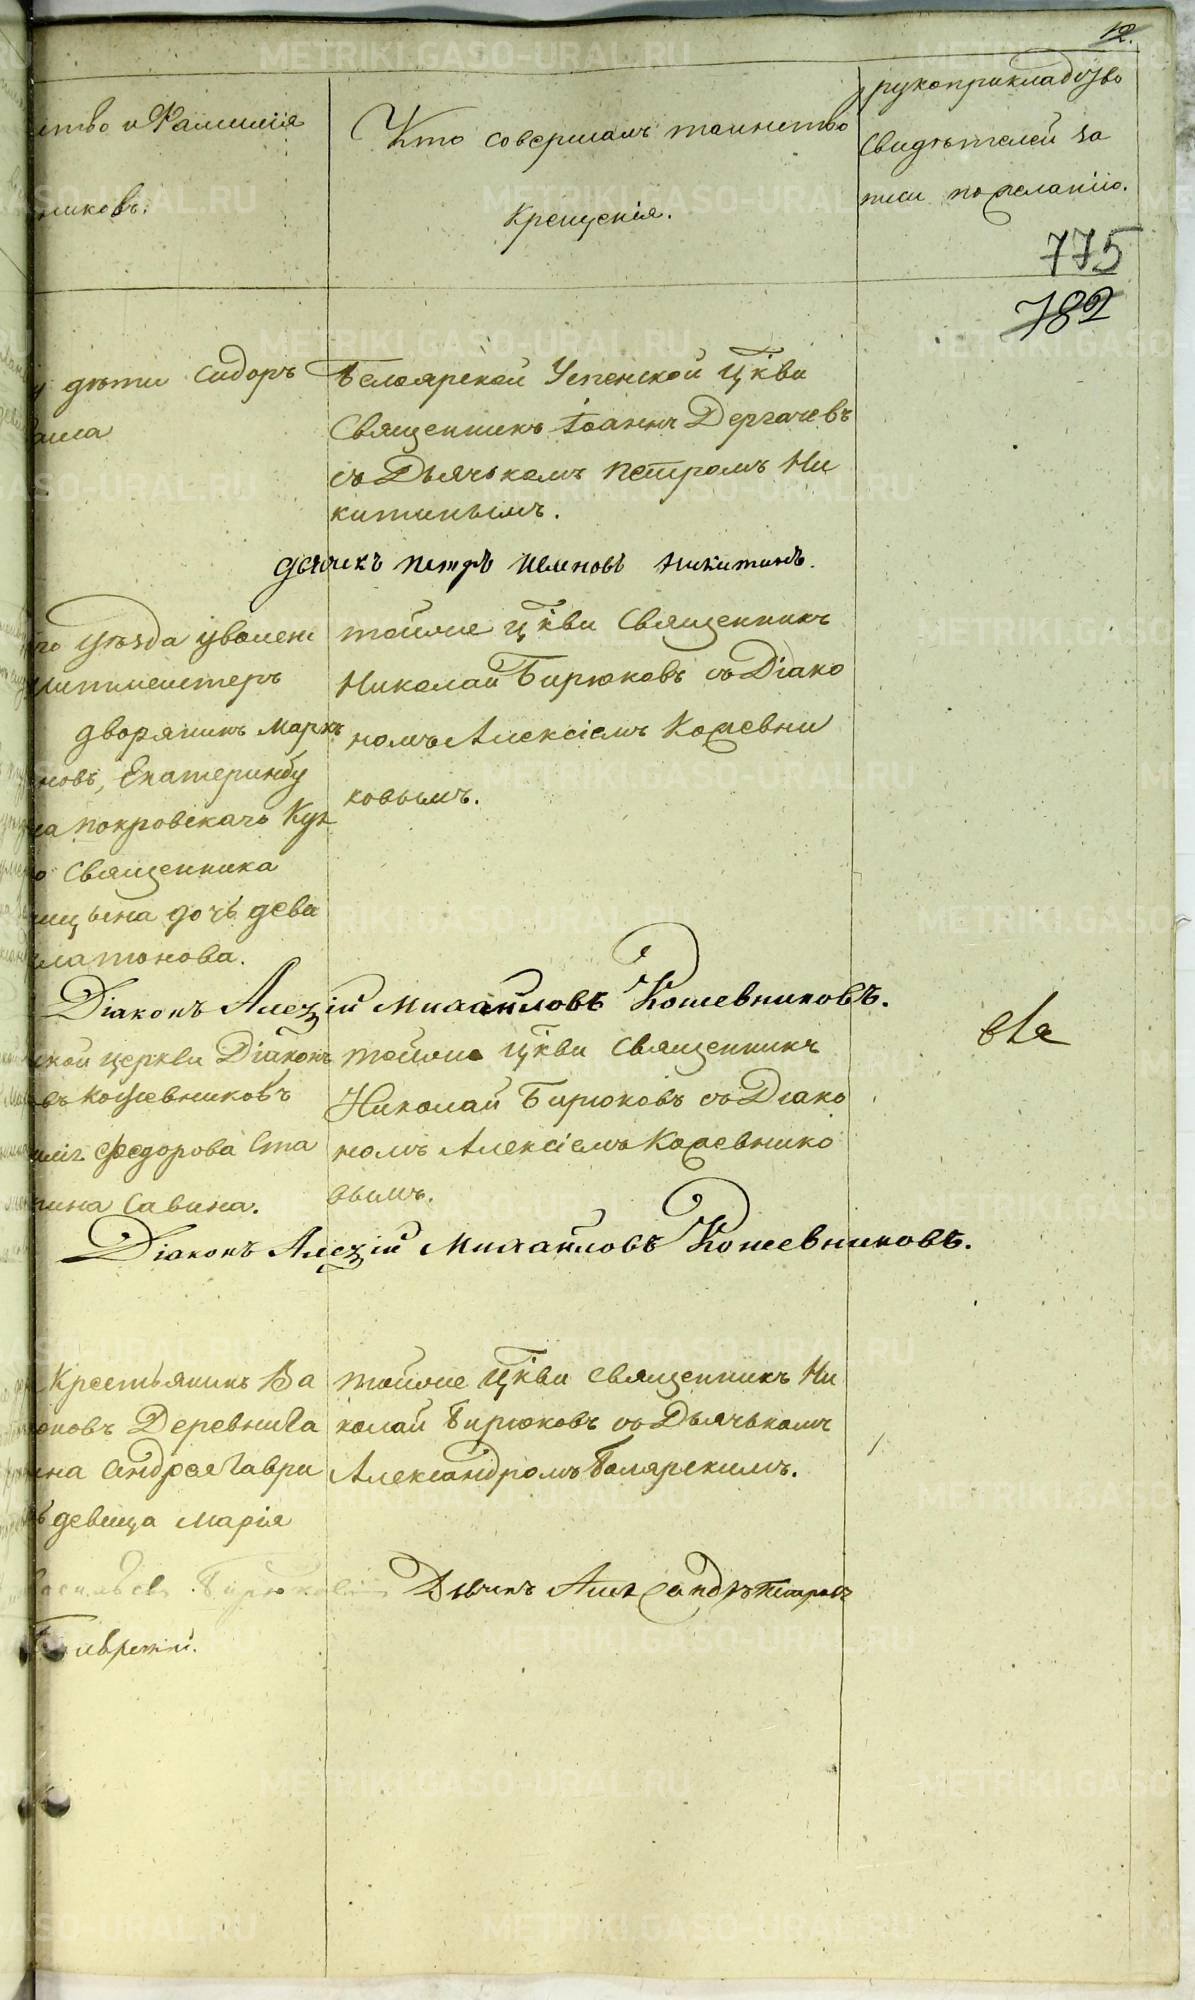 12.
ство и Фамилія
никовъ.
Кто совершалъ таинство
Крещенія.
рукоприкладство
свидѣтелей за
писи по желанію.
775
782
дѣти Сидоръ
Белоярской Успенской Цркви
Священникъ Іоаннъ Дергачевъ
съ Дьячькомъ Петромъ Ни
китинымъ.
Дьячекъ Петръ Ивановъ Никитинъ.
го Уѣзда уволен
дворянинъ Маркъ
новъ, Екатеринбу
на Покровскачо Куп
о Священника
ицына дочь дева
латонова.
тойже Цркви Священникъ
Николай Бирюковъ съ Діако
номъ Алексіемъ Кожевни
ковымъ.
Діаконъ Алексій Михайловъ Кожевниковъ.
ской церкви Діаконъ
въ Кожевниковъ
Федорова Ста
нина Савина.
тойже Цркви Священникъ
Николай Бирюковъ съ Діако
номъ Алексіемъ Кожевнико
вымъ.
Діаконъ Алексій Михайловъ Кожевниковъ.
Крестьянинъ Ва
Деревни Га
ина Андрея Гаври
девица Марія
тойже Цркви Священникъ Ни
колай Бирюковъ съ Дьячькомъ
Александромъ Боярскимъ.
Дьячекъ Александръ Петровъ